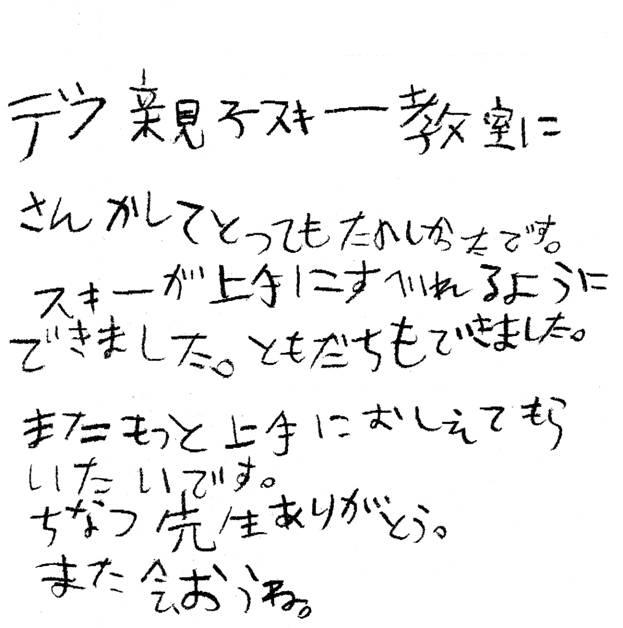 デフ親子スキー教室に
さんかしてとってもたのしかったです。
スキーが上手にすべれるように
できました。ともだちもできました。
またもっと上手におしえてもら
いたいです。
ちなつ先生ありがとう。
また会おうね。